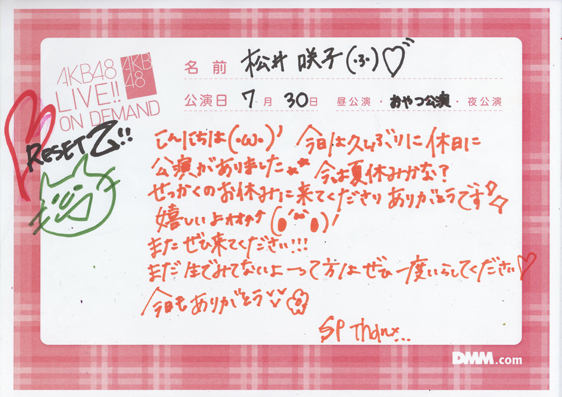 AKB48
LIVE!!
ON DEMAND
AKB
48
名前 松井咲子(・ふ・)♡
公演日 7月30日 昼公演・おやつ公演・夜公演
RESET乙!!
こんにちは(・ω・)/ 今日は久しぶりに休日に
公演がありました 今は夏休みかな?
せっかくのお休みに来てくださりありがとうです
嬉しいよォォォ
またぜひ来てください!!!
まだ生でみてないよーって方はぜひ一度いらしてください♡
今日もありがとう
SP thanx...
DMM.com